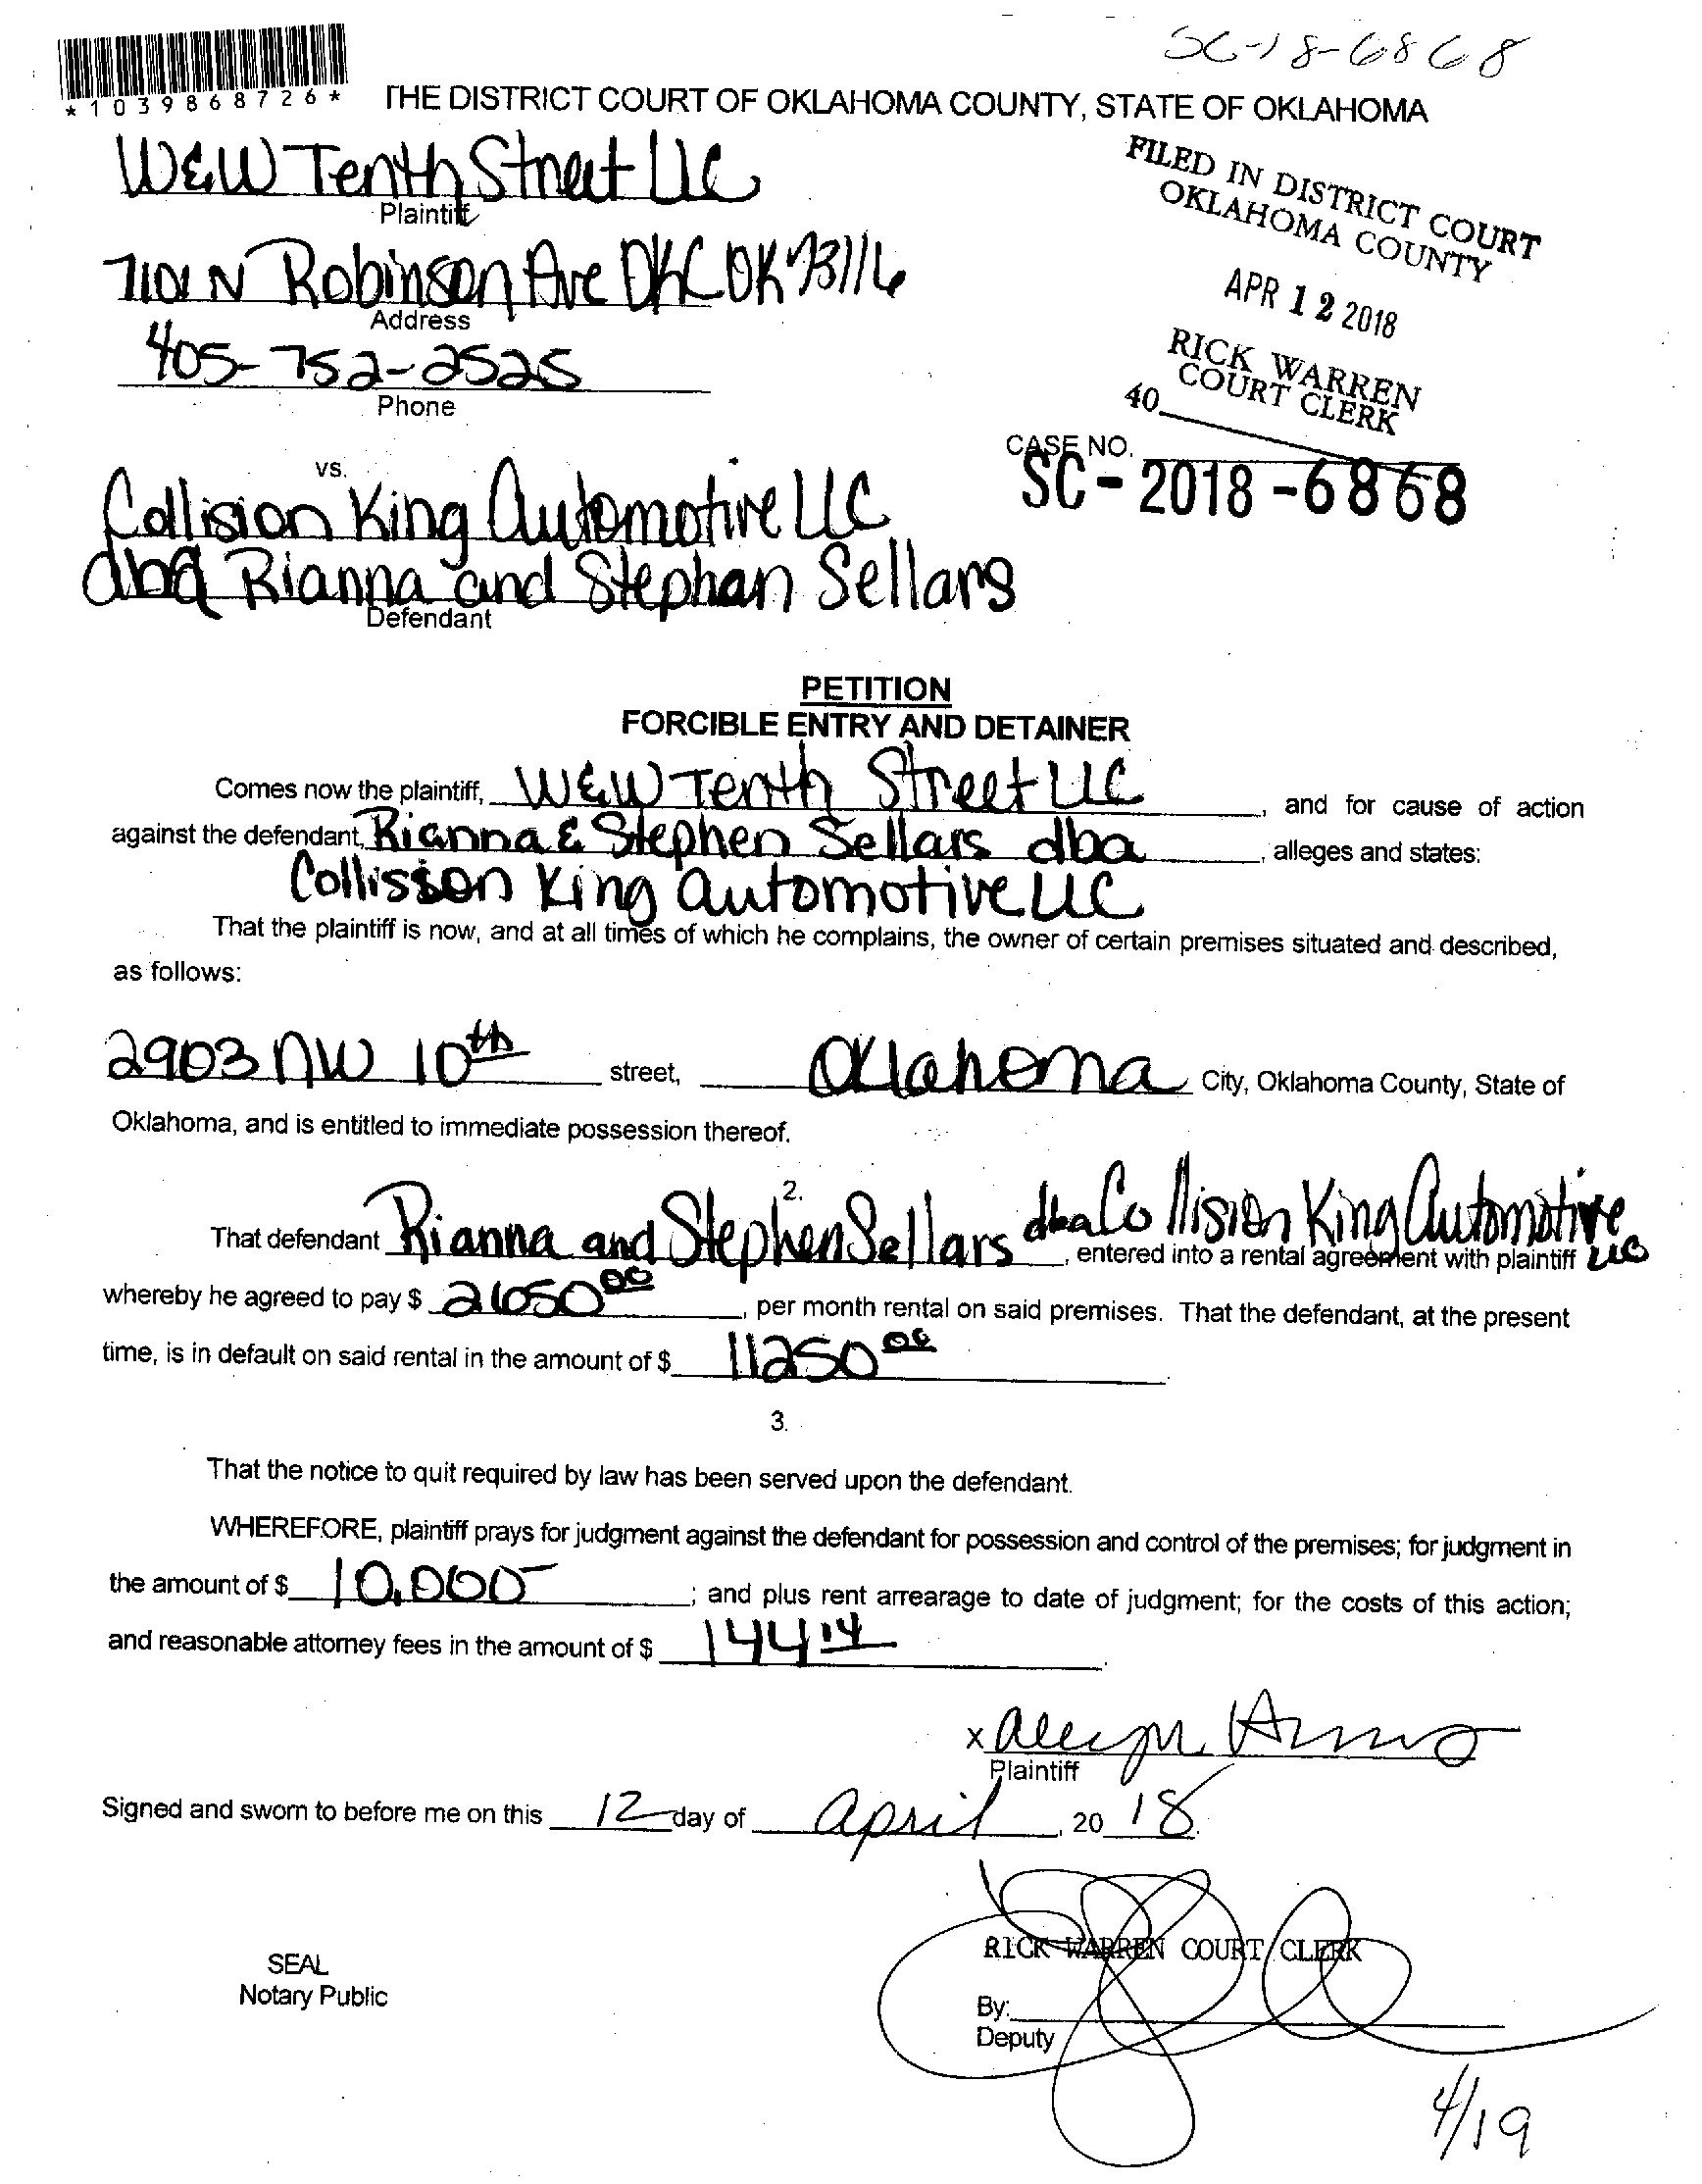 SC-18-6868
*1039868726*
THE DISTRICT COURT OF OKLAHOMA COUNTY, STATE OF OKLAHOMA
W&W Tenth Street LLC
Plaintiff
FILED IN DISTRICT COURT
OKLAHOMA COUNTY
APR 12 2018
RICK WARREN
COURT CLERK
40
7101 N Robinson Ave OKC OK 73116
Address
405-752-2525
Phone
CASE NO.
SC-2018-6868
vs.
Collision King Automotive LLC
dba Rianna and Stephan Sellars
Defendant
PETITION
FORCIBLE ENTRY AND DETAINER
Comes now the plaintiff, W&W Tenth Street LLC, and for cause of action
against the defendant, Rianna & Stephen Sellars dba, alleges and states:
Collission King Automotive LLC
That the plaintiff is now, and at all times of which he complains, the owner of certain premises situated and described,
as follows:
2903 NW 10th street, Oklahoma City, Oklahoma County, State of
Oklahoma, and is entitled to immediate possession thereof.
2.
That defendant Rianna and Stephen Sellars dba Collision King Automotive LLC, entered into a rental agreement with plaintiff
whereby he agreed to pay $ 2650 00, per month rental on said premises. That the defendant, at the present
time, is in default on said rental in the amount of $ 11250 00
3.
That the notice to quit required by law has been served upon the defendant.
WHEREFORE, plaintiff prays for judgment against the defendant for possession and control of the premises; for judgment in
the amount of $ 10,000-; and plus rent arrearage to date of judgment; for the costs of this action;
and reasonable attorney fees in the amount of $ 144 14.
x
Plaintiff
Signed and sworn to before me on this 12 day of April, 20 18.
SEAL
Notary Public
RICK WARREN COURT CLERK
By:
Deputy
4/19